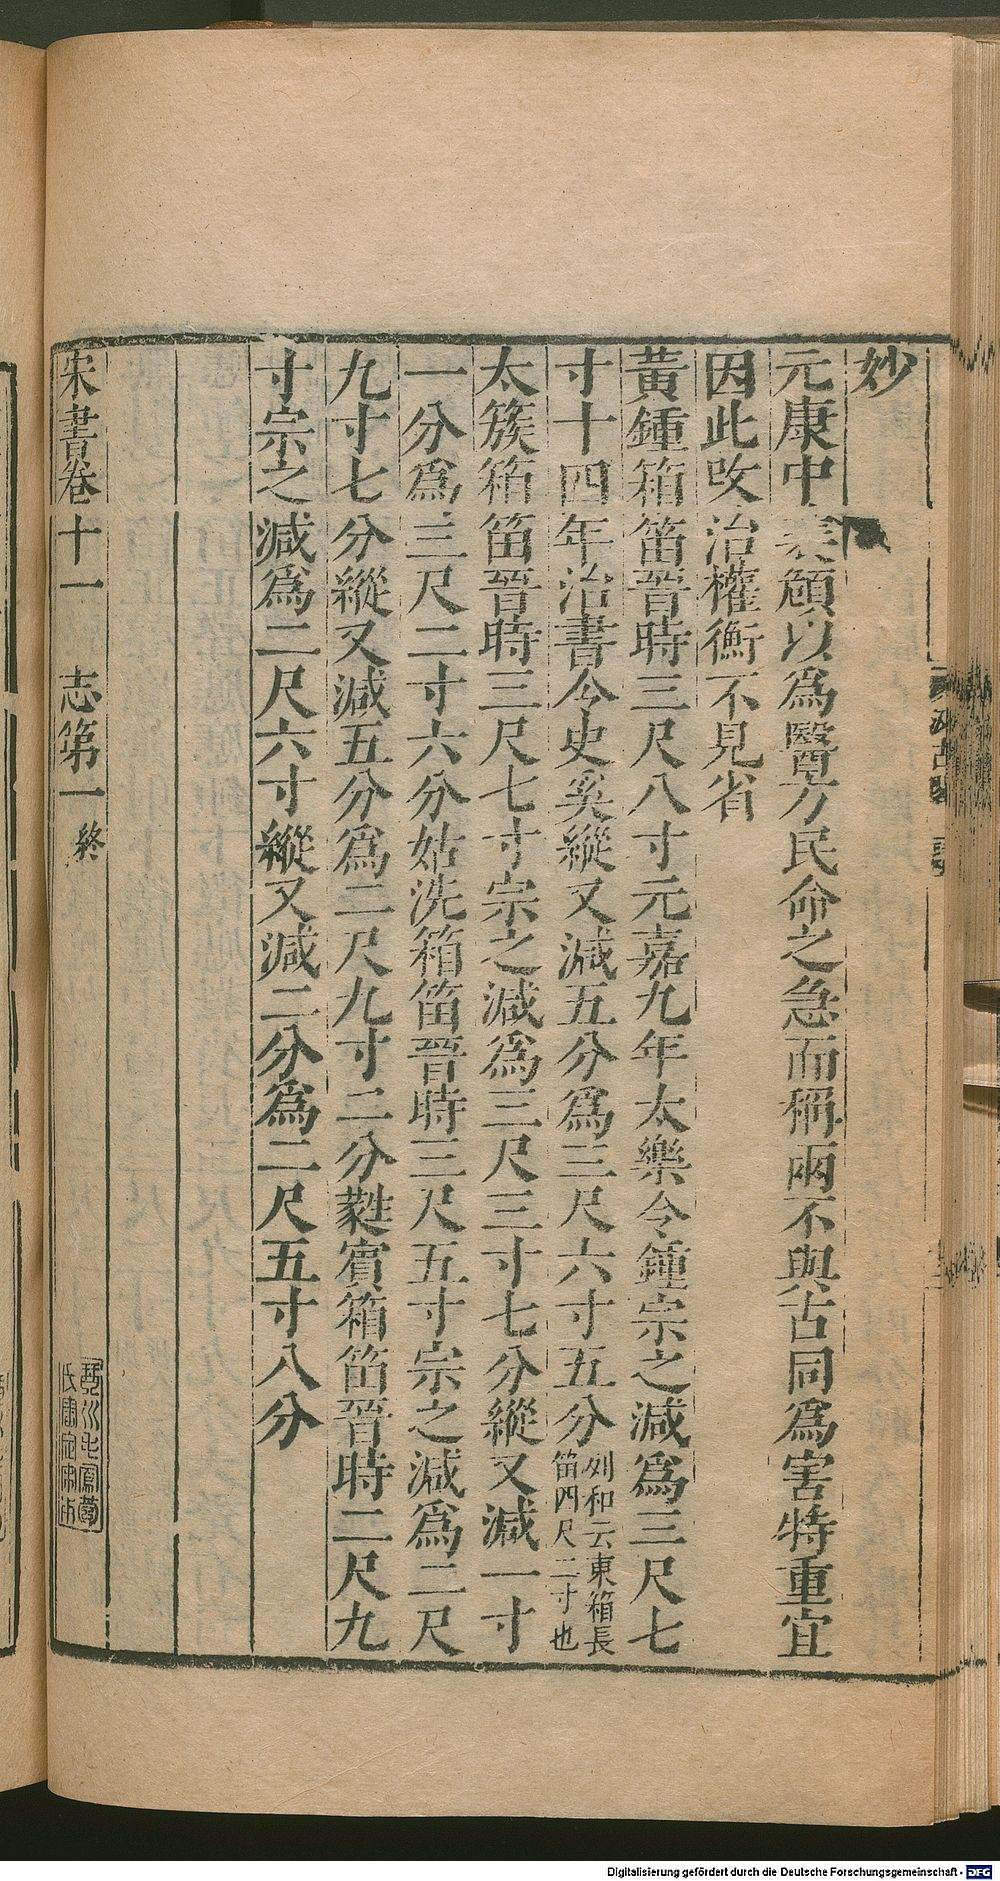 妙
元康中裴頠以爲醫方民命之急而稱兩不與古同爲害特重宜
因此改治權衡不見省
黃鍾箱笛晉時三尺八寸元嘉九年太樂令鍾宗之減爲三尺七
寸十四年治書令史奚縱又減五分爲三尺六寸五分列和云東箱長
笛四尺二寸也
太簇箱笛晉時三尺七寸宗之減爲三尺三寸七分縱又減一寸
一分爲三尺二寸六分姑洗箱笛晉時三尺五寸宗之減爲二尺
九寸七分縱又減五分爲二尺九寸二分蕤賓箱笛晉時二尺九
寸宗之減爲二尺六寸縱又減二分爲二尺五寸八分
宋書卷十一 志第一 終
Digitalisierung gefördert durch die Deutsche Forschungsgemeinschaft - DFG